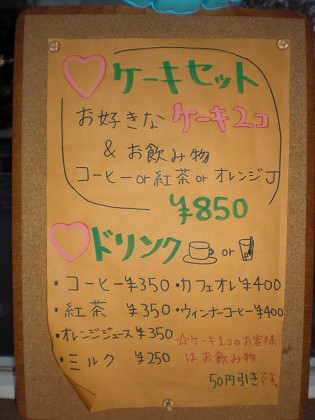 ♡ケーキセット
お好きなケーキ2コ
& お飲み物
コーヒーor紅茶orオレンジJ
¥850
♡ドリンク or
・コーヒー¥350・カフェオレ¥400
・紅茶 ¥350・ウィンナーコーヒー¥400
・オレンジジュース¥350
・ミルク ¥250
☆ケーキ1コのお客様
はお飲み物
50円引きです。